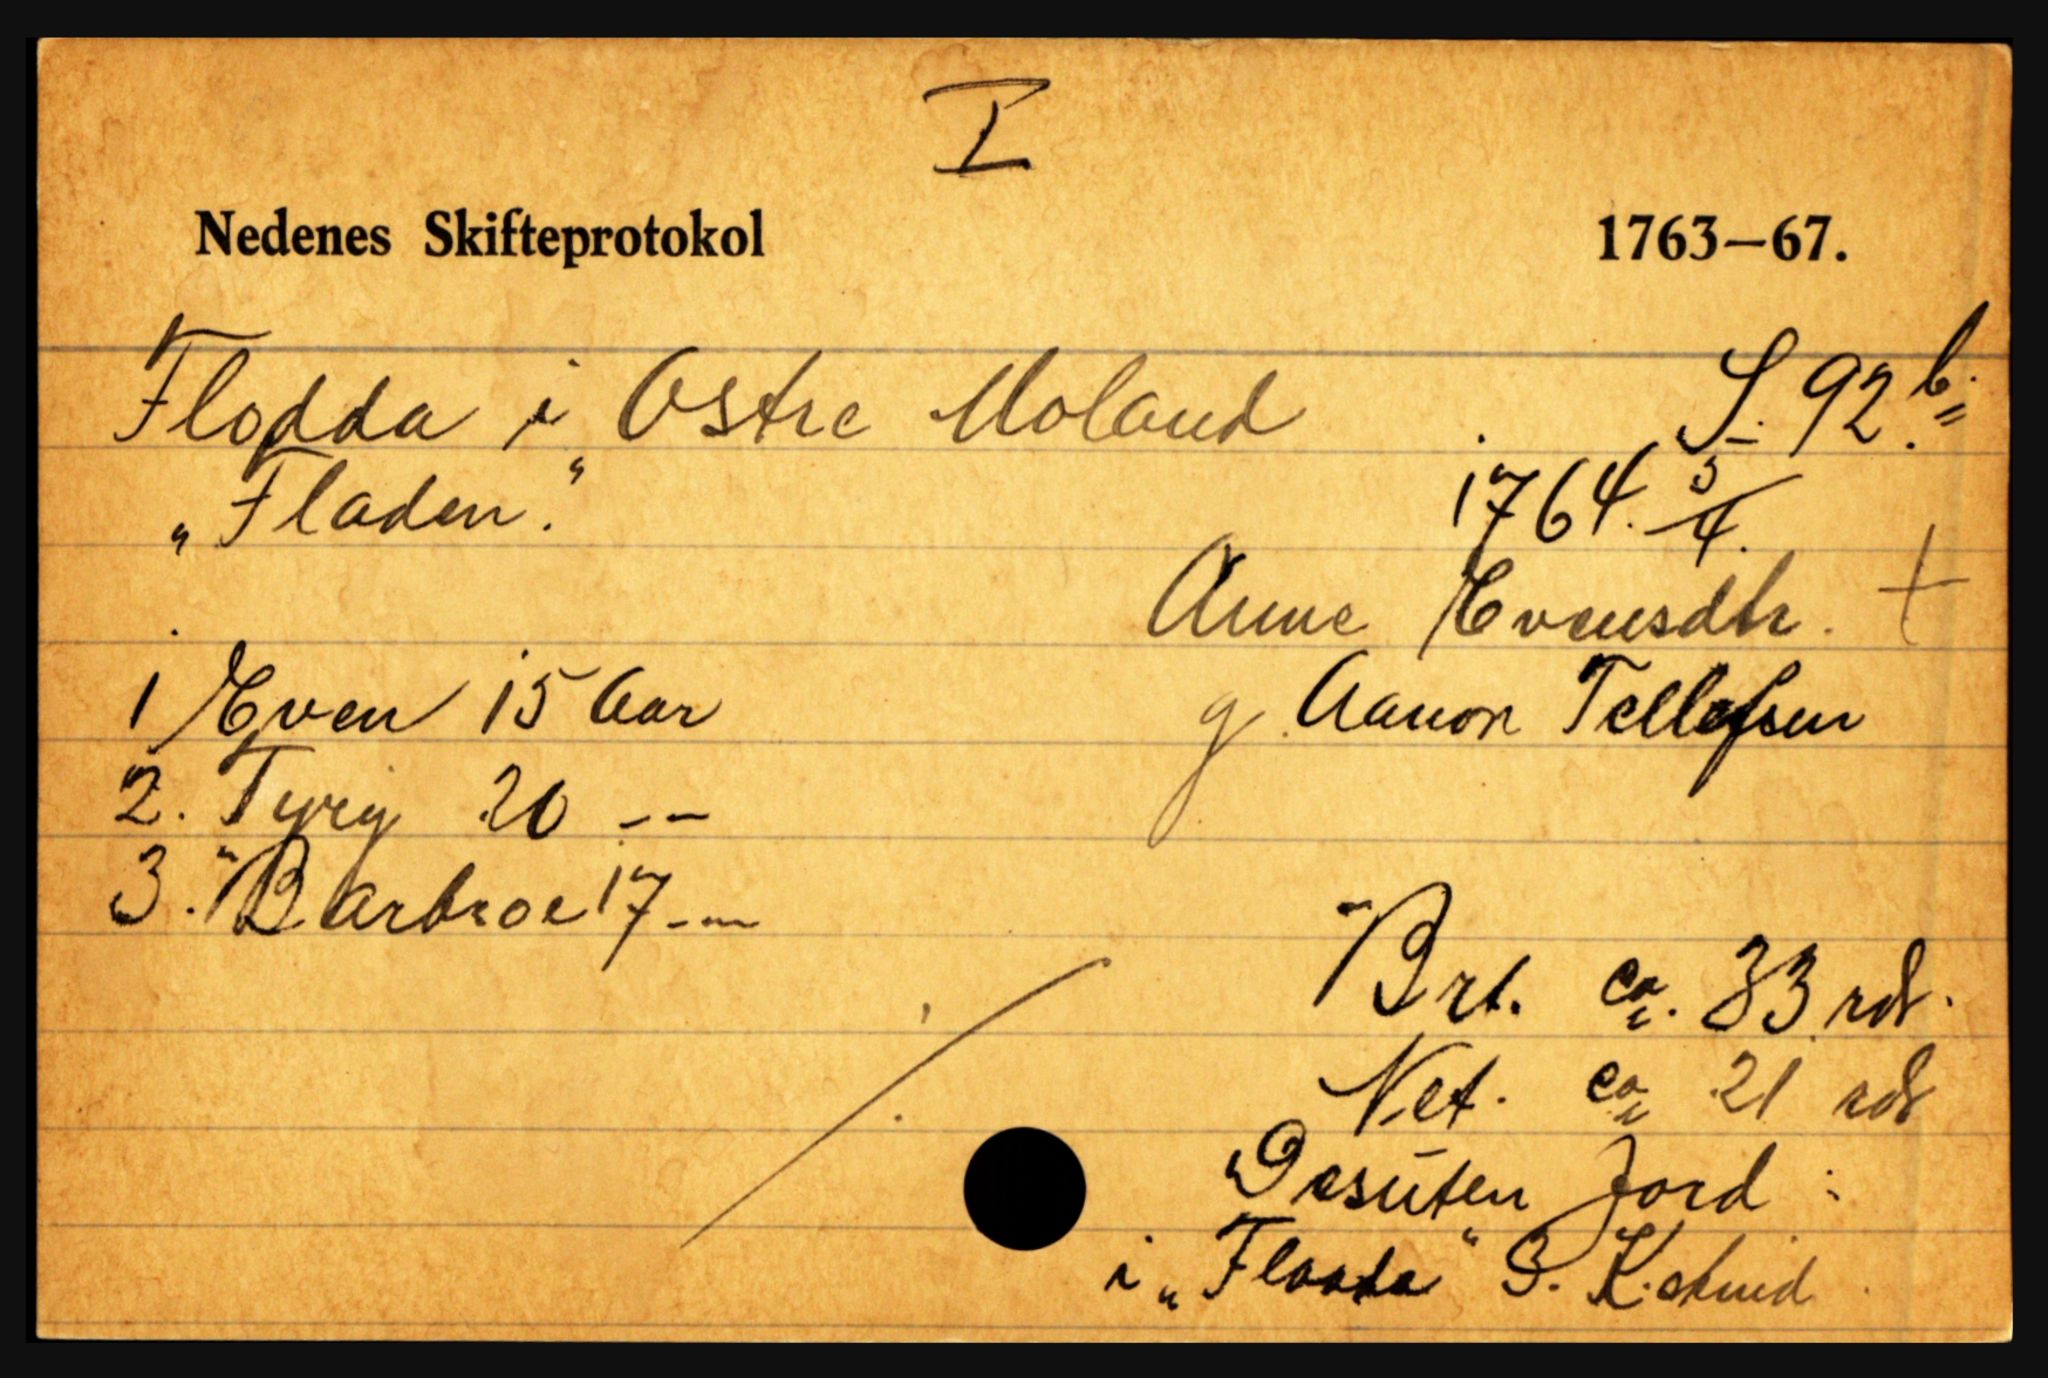 I
Nedenes Skifteprotokol 1763—67.
Flodda i Østre Moland S. 92 b.
„Fladen." 1764. 5/4.
Anne Evensdtr. +
1 Even 15 Aar g. Aanon Tellefsen
2. Tyrij 20 --
3. Barbroe 17 --
Brt. ca. 33 rdl.
Net. ca 21 rdl
Desuten Jord :
i „Flodda" 3. K.